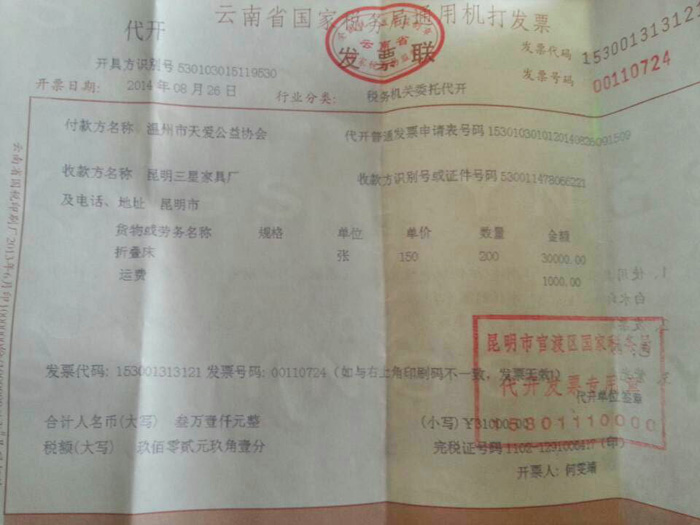 云南省国家税务局通用机打发票
代开
发票联
云南省
发票代码 153001313121
发票号码 00110724
开具方识别号 530103015119530
开票日期: 2014 年 08 月 26 日 行业分类: 税务机关委托代开
付款方名称 温州市天爱公益协会 代开普通发票申请表号码
收款方名称 昆明三星家具厂 收款方识别号或证件号码 530011478066221
及电话、地址 昆明市
货物或劳务名称 规格 单位 单价 数量 金额
折叠床 张 150 200 30000.00
运费 1000.00
昆明市官渡区国家税务局
发票代码: 153001313121 发票号码: 00110724 (如与右上角印刷码不一致,发票无效)
代开发票专用章
代开单位签章
合计人名币(大写) 叁万壹仟元整 (小写)¥31000.00
15301110000
税额(大写) 玖佰零贰元玖角壹分 完税证号码 (印)
开票人: 何雯